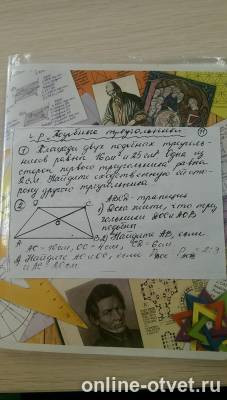 с.р. Подобные треугольники
① Площади двух подобных треуголь-
ников равны 16см² и 25см². Одна из
сторон первого треугольника равна
2см. Найдите сходственную ей сто-
рону другого треугольника
② ABCD - трапеция
B C
1) Доказать, что тре
O
угольники и AOB
подобны
A
2) Найдите AB, если
OC = 4см, CD = 6см
Найдите AO и OC, если = 2:3
и AC =
online-otvet.ru